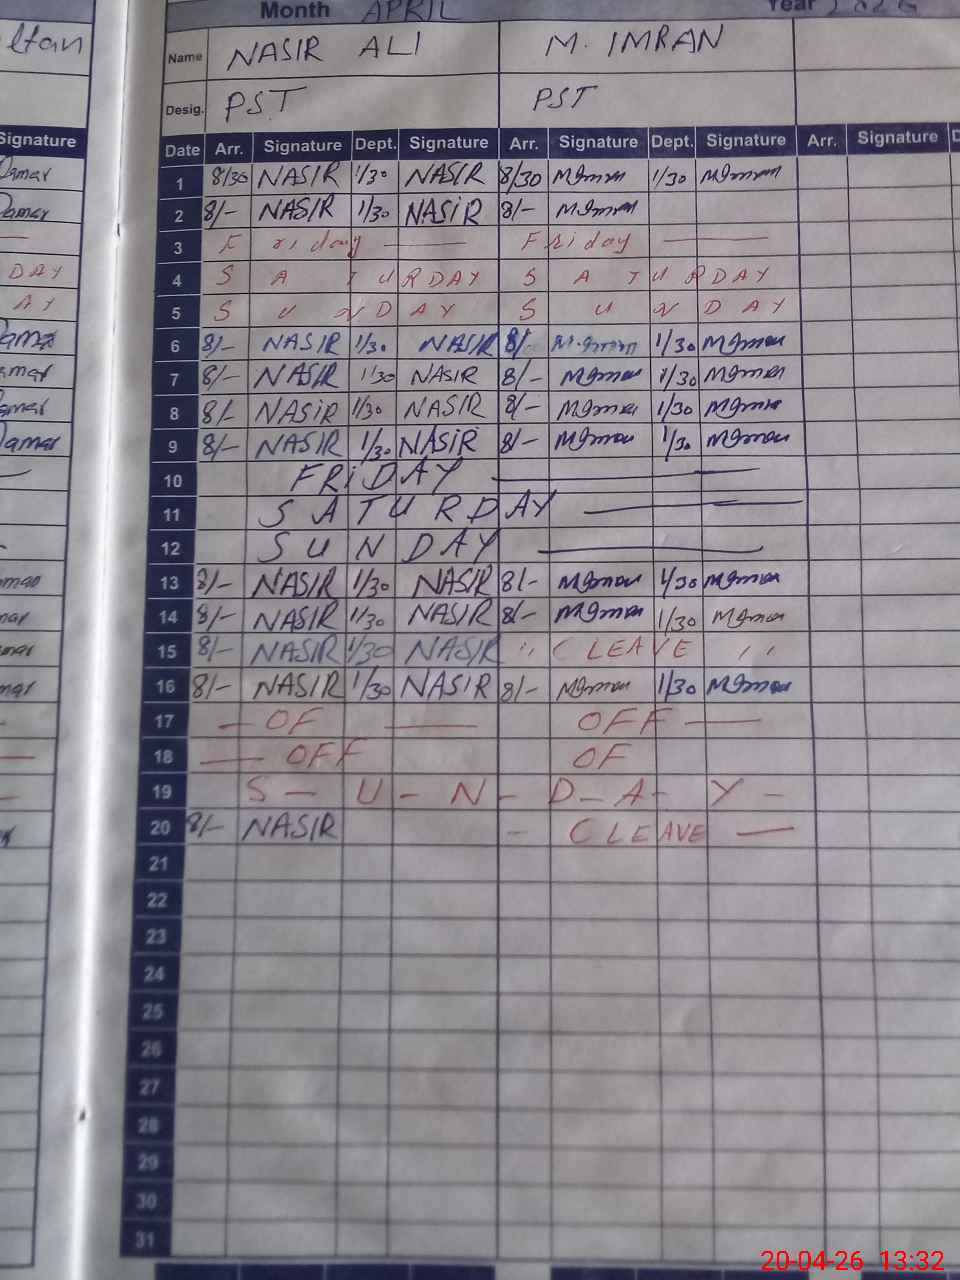 Month APRIL Year 2026
ltan
Name NASIR ALI M. IMRAN
Desig. PST PST
Signature Date Arr. Signature Dept. Signature Arr. Signature Dept. Signature Arr. Signature D
1 8/30 NASIR 1/30 NASIR 8/30 MImran 1/30 MImran
2 8/- NASIR 1/30 NASIR 8/- MImran
3 Friday Friday
DAY 4 SATURDAY SATURDAY
AY 5 SUNDAY SUNDAY
6 8/- NASIR 1/30 NASIR 8/- M.Imran 1/30 MImran
7 8/- NASIR 1/30 NASIR 8/- MImran 1/30 MImran
8 8/- NASIR 1/30 NASIR 8/- MImran 1/30 MImran
9 8/- NASIR 1/30 NASIR 8/- MImran 1/30 MImran
10 FRIDAY
11 SATURDAY
12 SUNDAY
13 8/- NASIR 1/30 NASIR 8/- MImran 1/30 MImran
14 8/- NASIR 1/30 NASIR 8/- MImran 1/30 MImran
15 8/- NASIR 1/30 NASIR " C LEAVE "
16 8/- NASIR 1/30 NASIR 8/- MImran 1/30 MImran
17 — OF — OFF —
18 — OFF OF
19 S - U - N - D - A - Y -
20 8/- NASIR - C LEAVE —
21
22
23
24
25
26
27
28
29
30
31
20-04-26 13:32